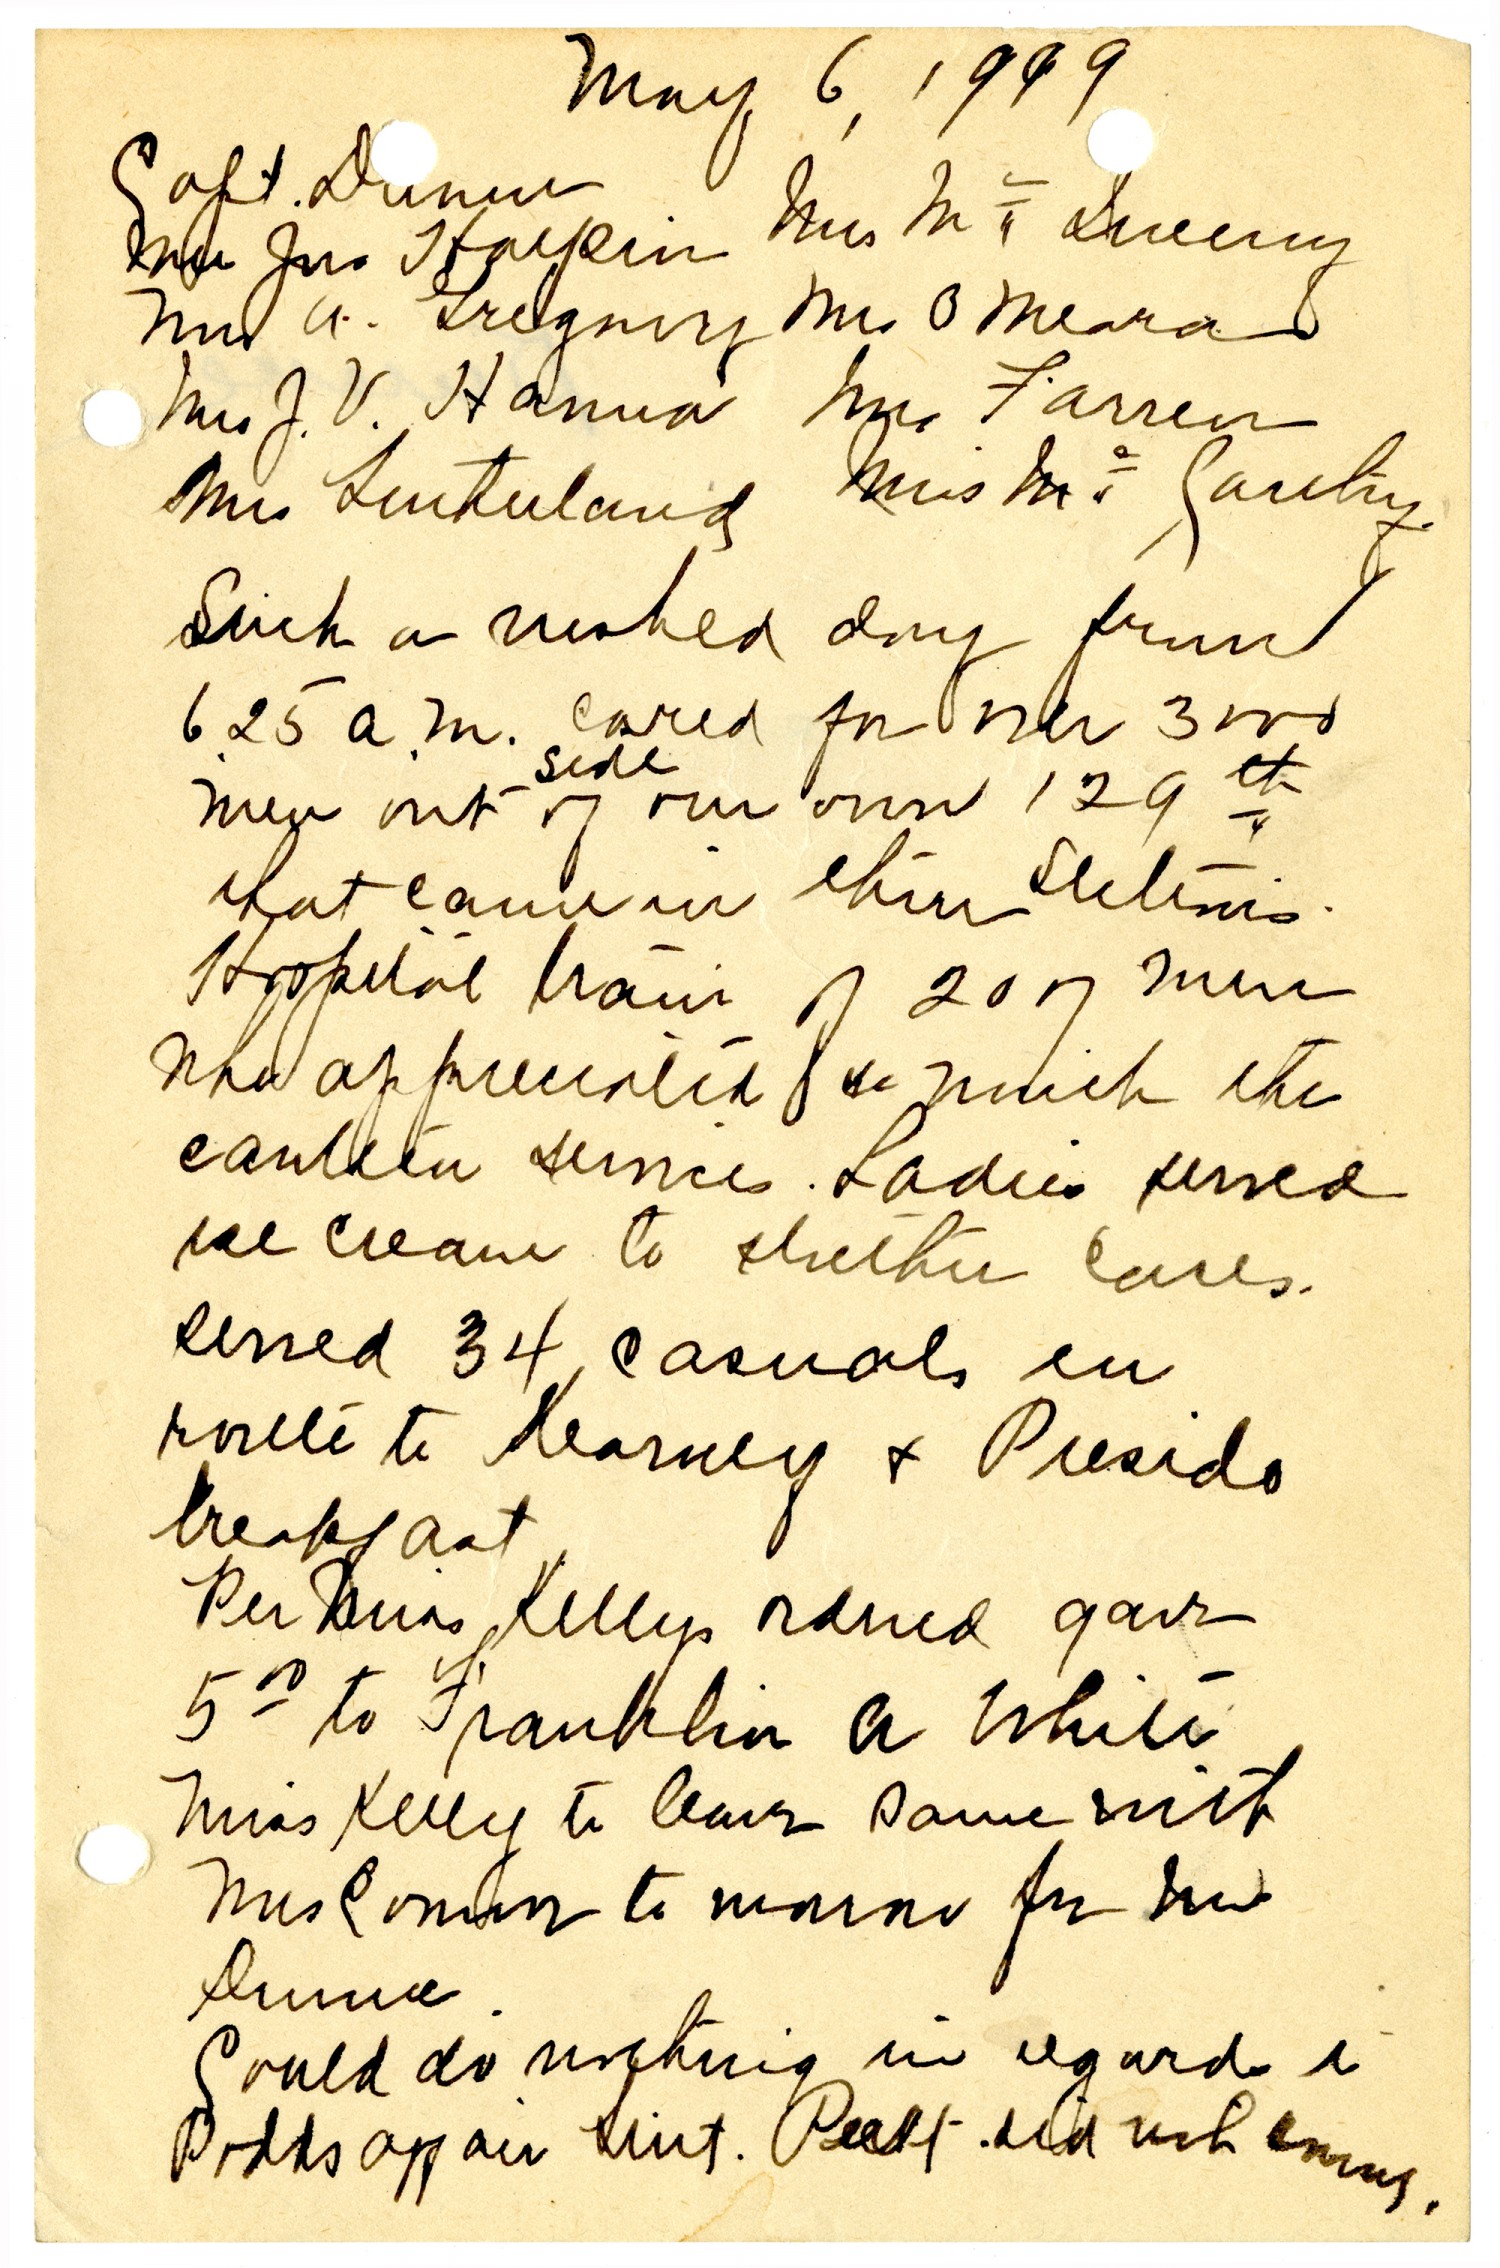 May 6, 1919
Capt. Dunne
Mrs Jno Halpin Mrs Mc Sweeny
Mrs A. Gregnory Mrs O Meara
Mrs J. V. Hanna Mrs Farren
Mrs Sutherland Miss Mc Carthy
Such a rushed day from
6.25 a.m. cared for over 3000
men out side of our own 129th
that came in three sections.
Hospital train of 207 men
who appreciated so much the
canteen services. Ladies served
ice cream to stretcher cases.
served 34 casuals en
route to Kearney & Presido
breakfast
Per Miss Kellys ordred gave
5 00 to Franklin A White
Miss Kelly to leave same with
Mrs Connor to morow for Mrs
Dunne.
Could do nothing in regards
Dodds appoin tint. did not come.